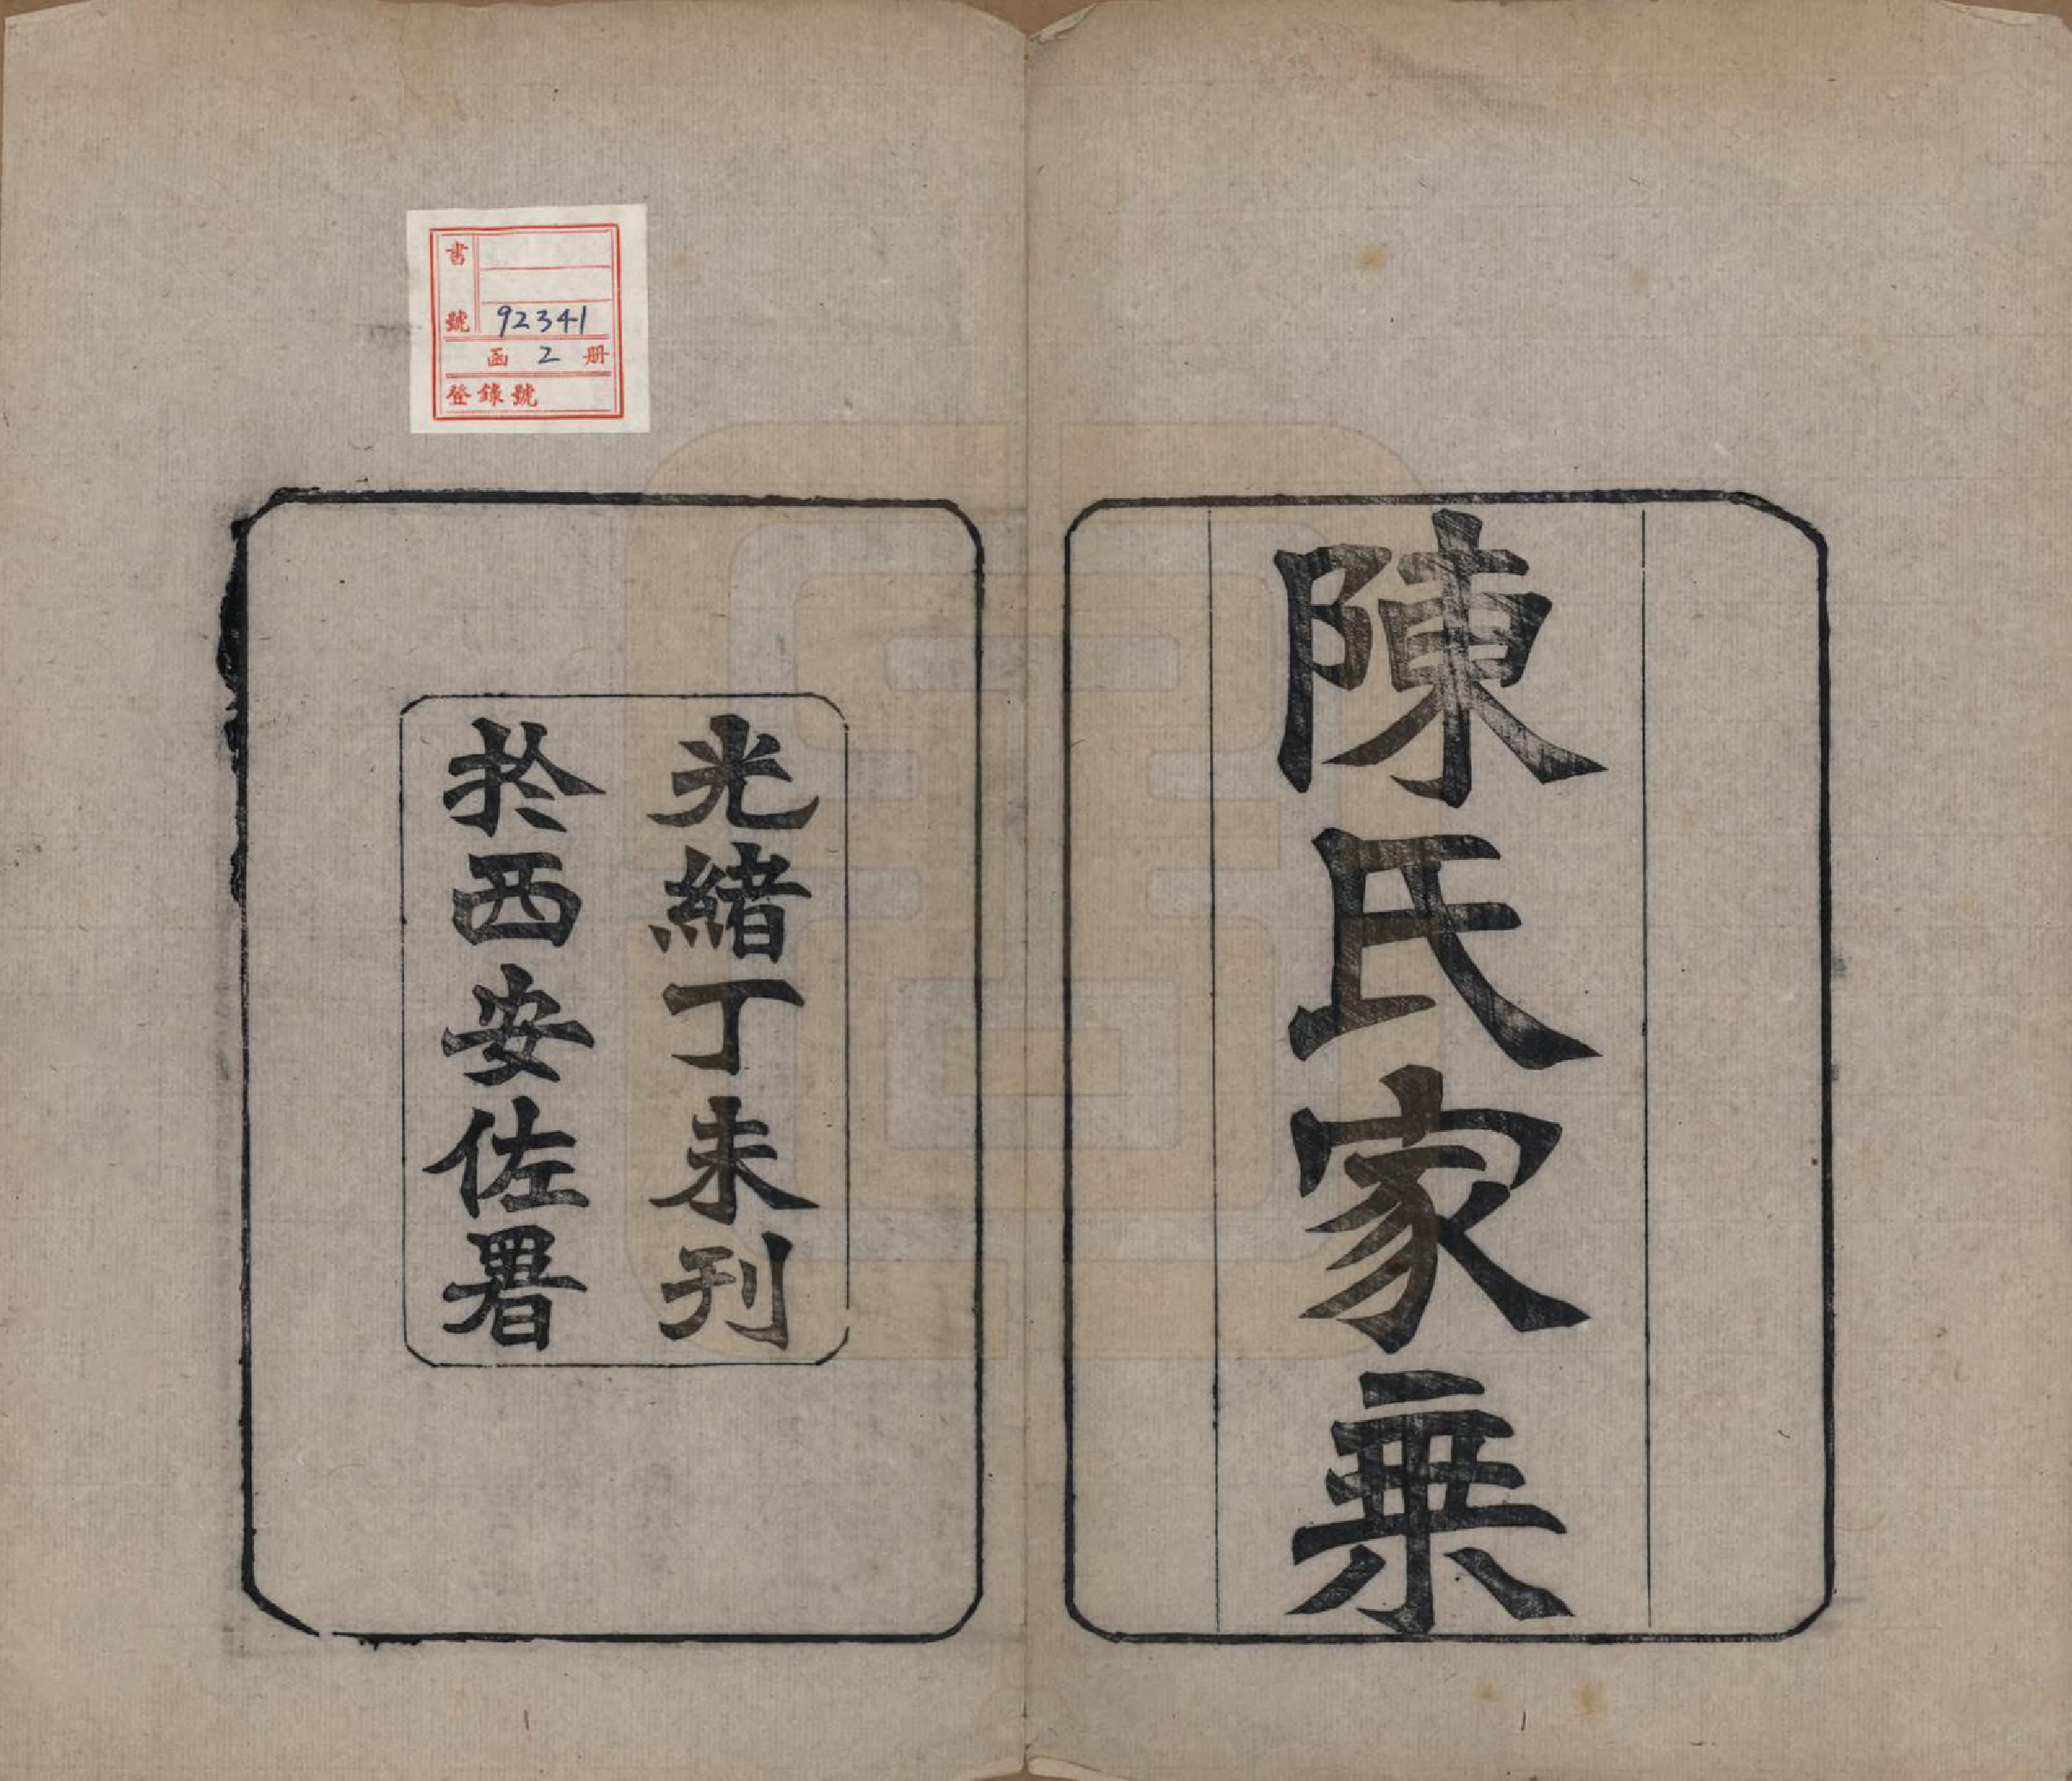 陳氏家乗
光緒丁未刊
於西安佐署
書號 92341
函 2 册
登錄號